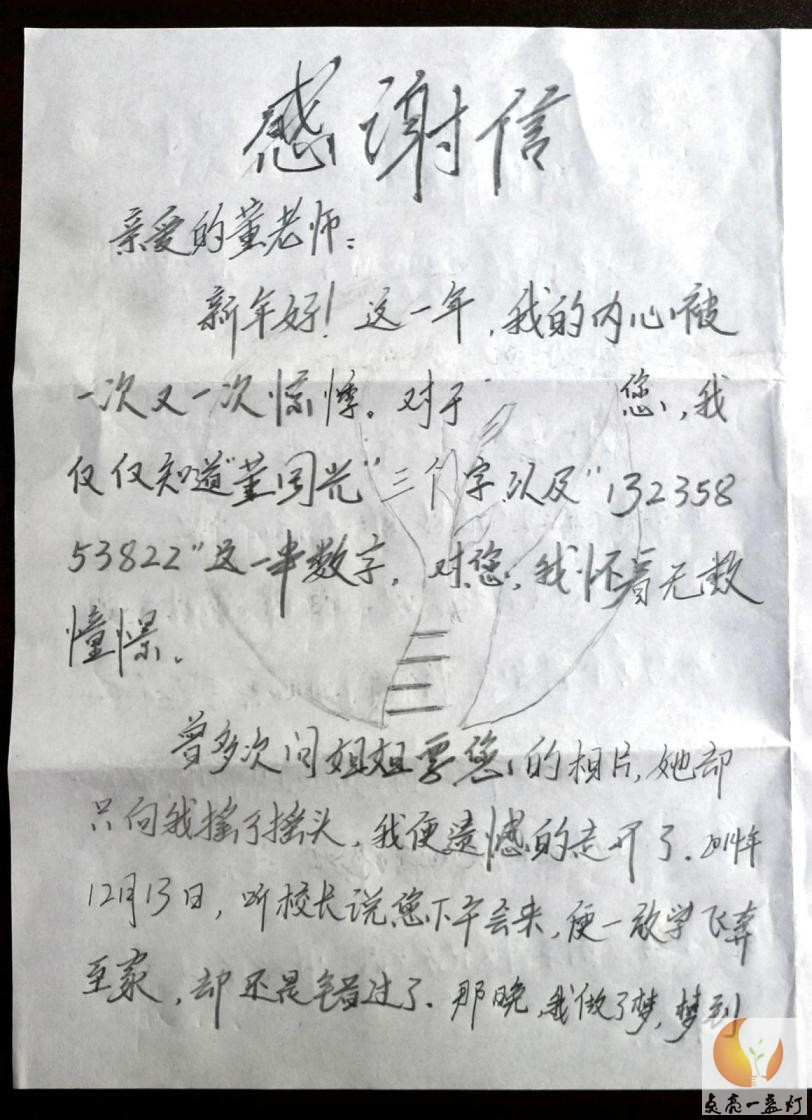 感谢信
亲爱的董老师：
新年好！这一年，我的内心被
一次又一次惊悸。对于 您，我
仅仅知道“董国光”三个字以及“132358
53822”这一串数字，对您，我怀着无数
憧憬。
曾多次问姐姐要您的相片，她却
只向我摇了摇头，我便遗憾的走开了．2014年
12月13日，听校长说您下午会来，便一放学飞奔
至家，却还是错过了．那晚，我做了梦，梦到
点亮一盏灯